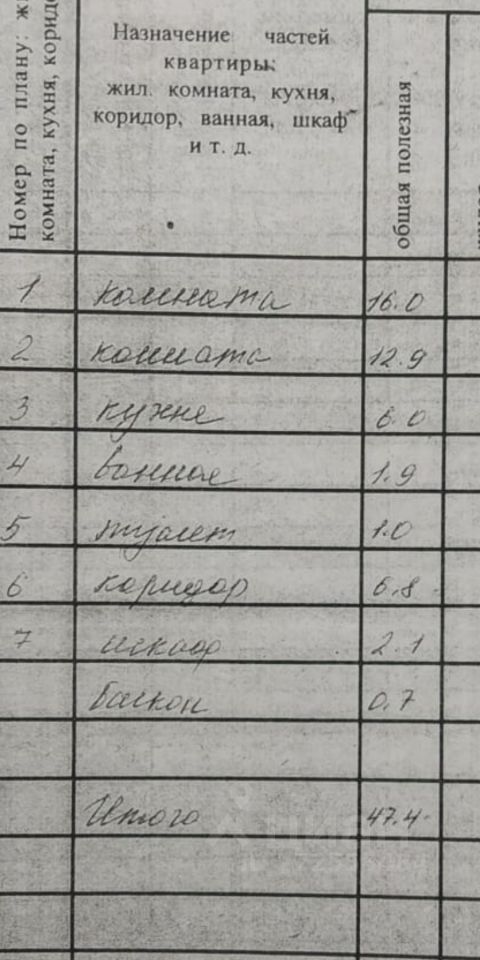 Номер по плану: жи
комната, кухня, коридо
Назначение частей
квартиры:
жил. комната, кухня,
коридор, ванная, шкаф
и т. д.
общая полезная
1 комната 16.0
2 комната 12.9
3 кухне 6.0
4 ванное 1.9
5 туалет 1.0
6 коридор 6.8
7 шкаф 2.1
балкон 0.7
Итого 47.4